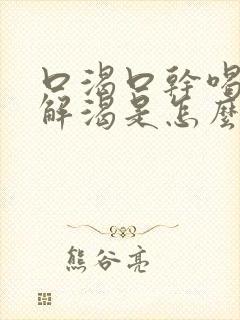 口渴口幹喝
解渴是怎麼
熊谷亮